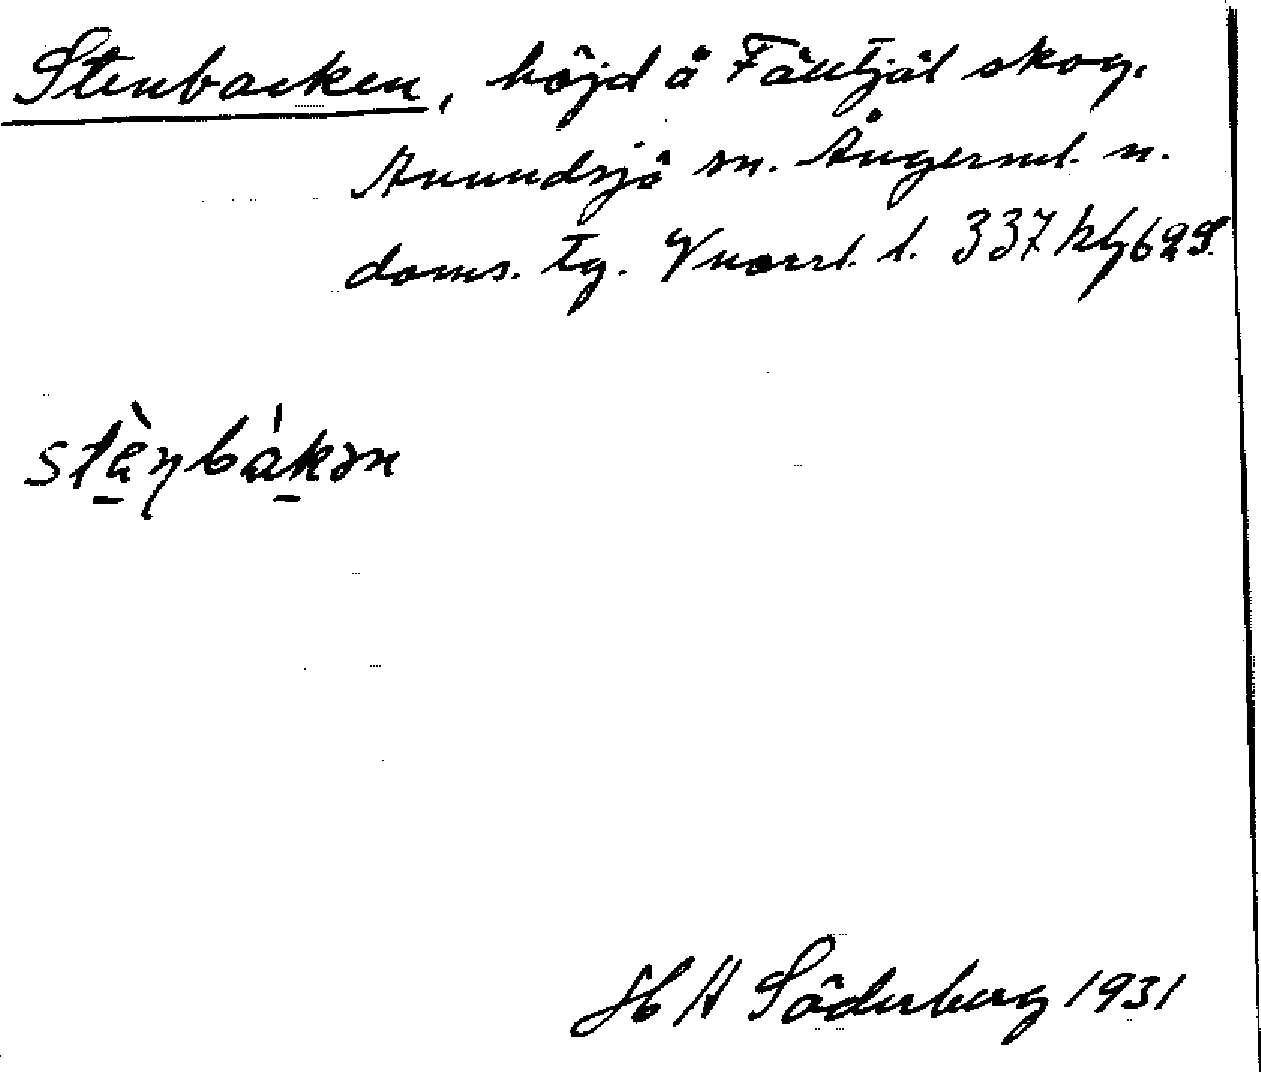 Stenbacken, höjd å Fäntjäl skog,
Anundsjö sn. Ångerml. n.
doms. tg. Vnorrl. l. 337
stènbákən
H A Söderberg 1931